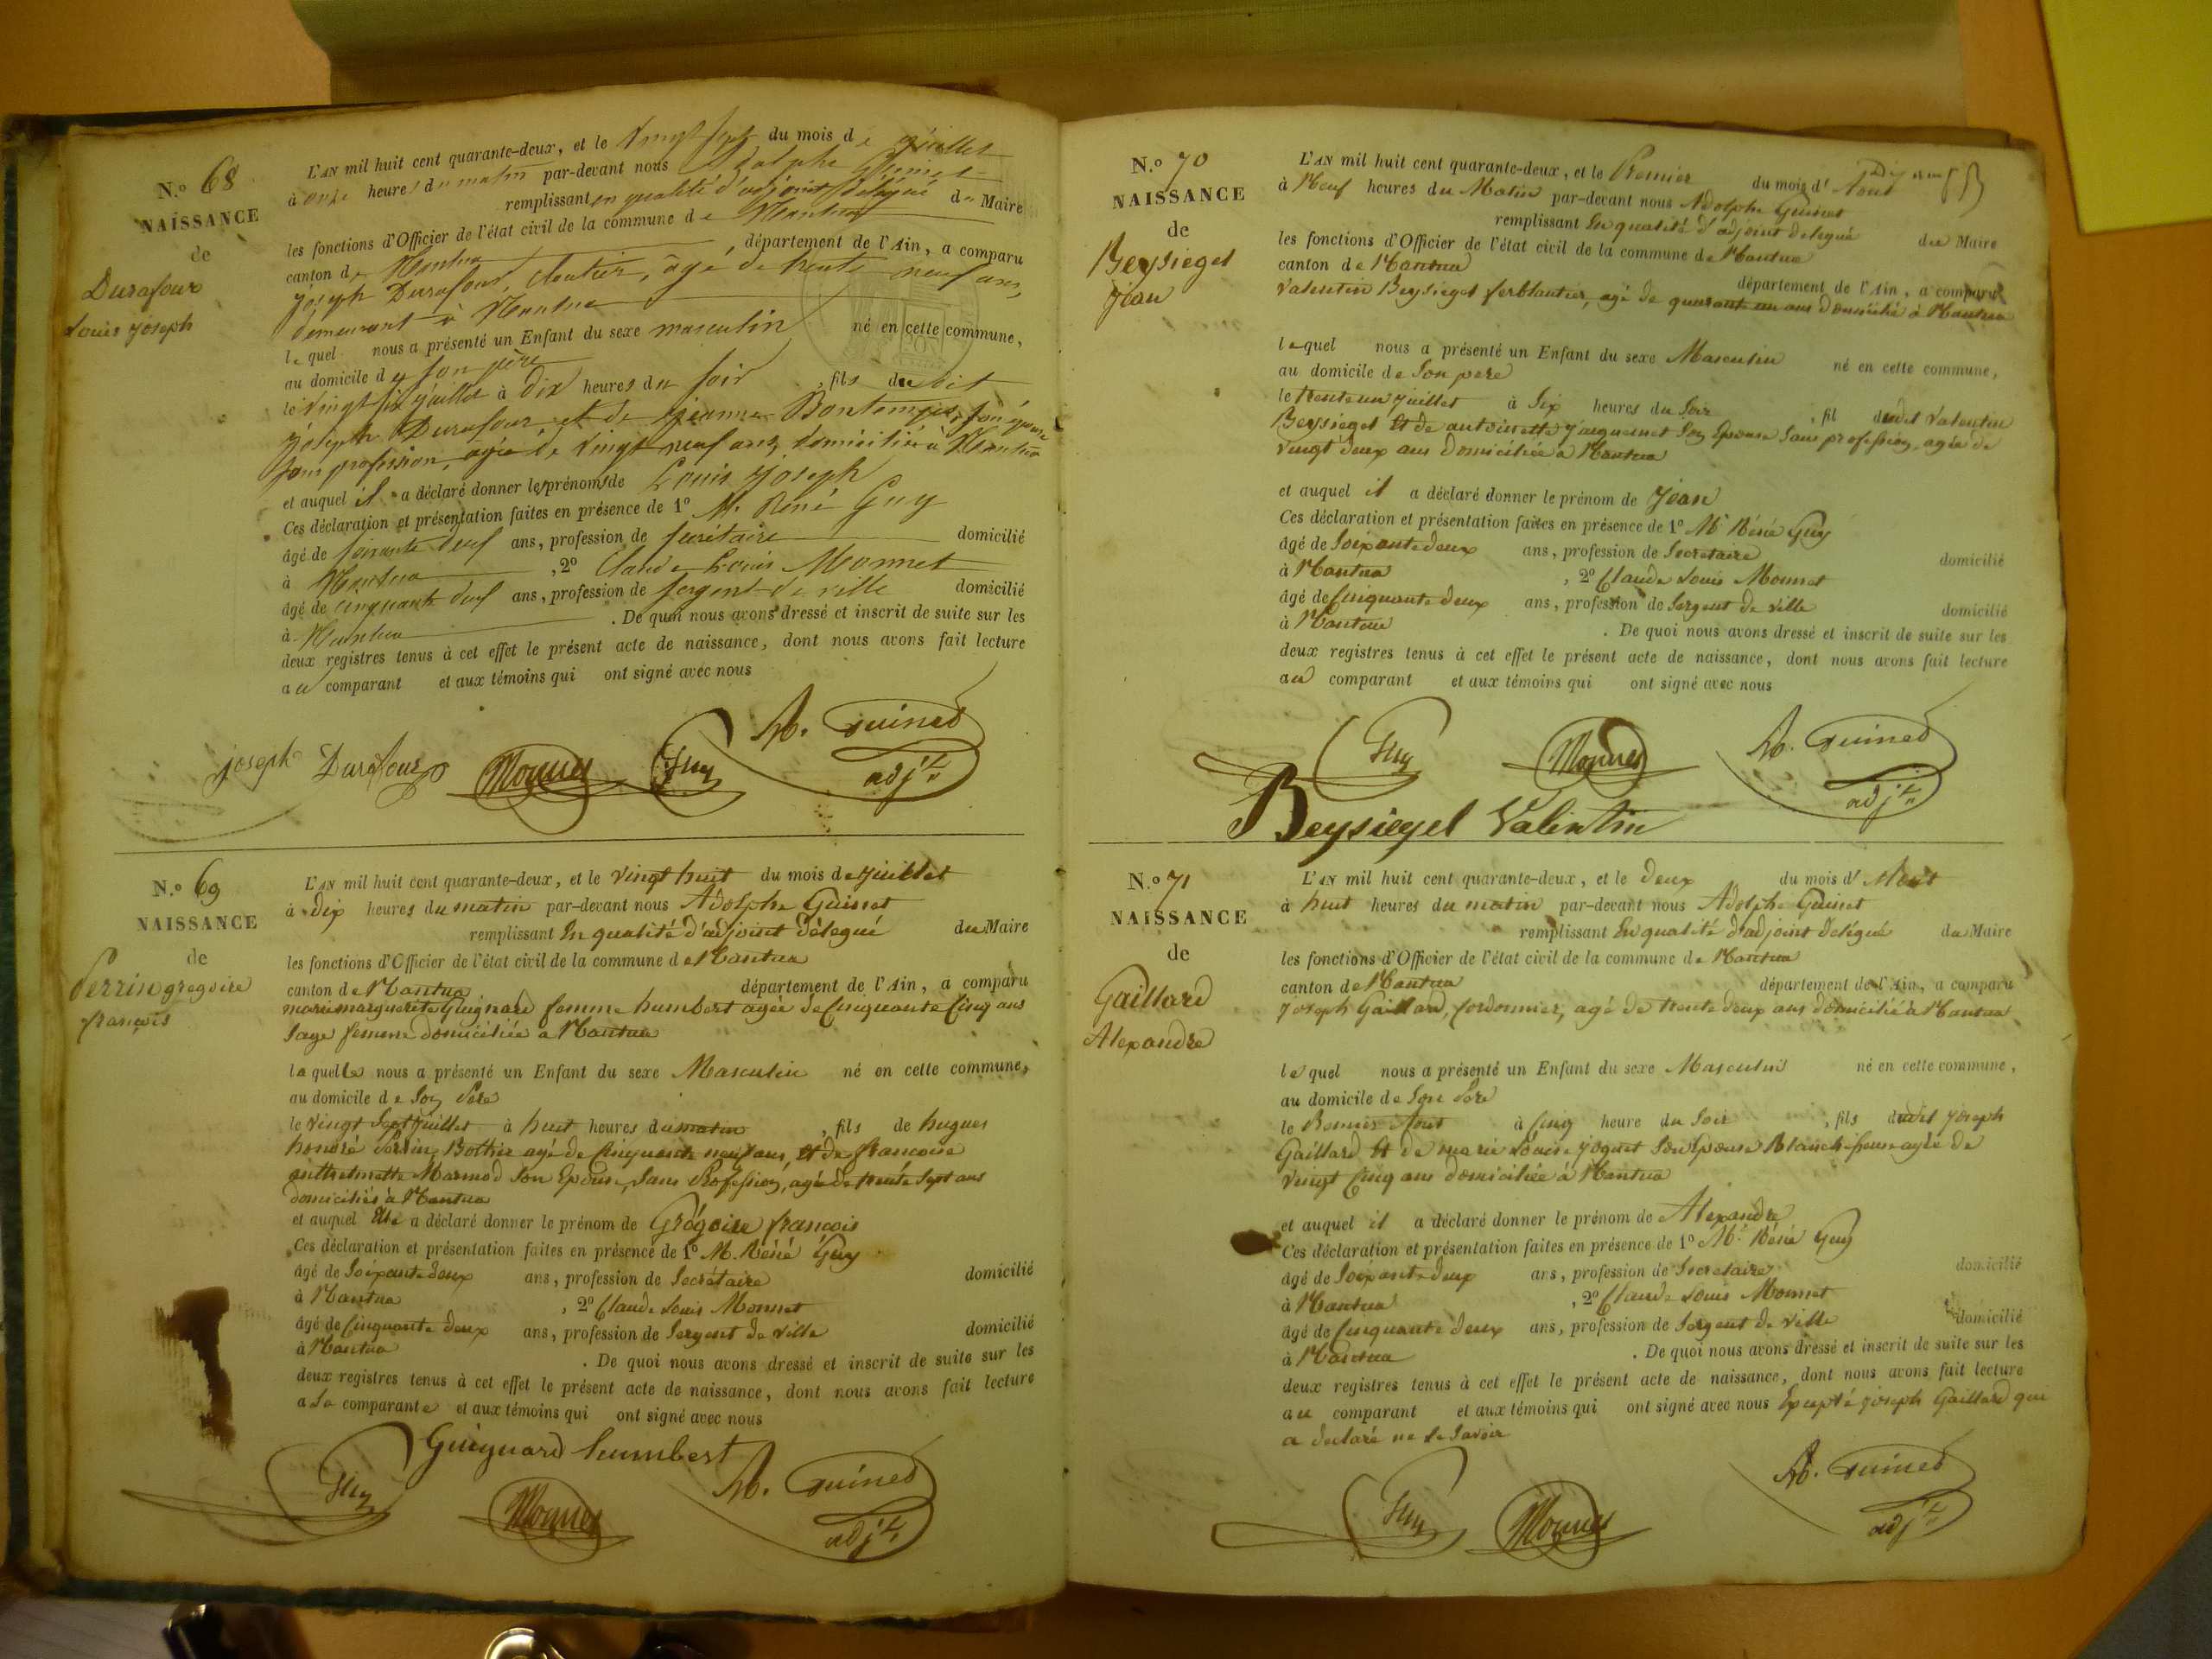 N.º 68
NAISSANCE
de
Durafour
Louis Joseph
L'AN mil huit cent quarante-deux, et le vingt sept du mois de juillet
à onze heures du matin par-devant nous Adolphe Guinet
remplissant en qualité d'adjoint délégué du Maire
les fonctions d'Officier de l'état civil de la commune de Nantua
canton de Nantua, département de l'Ain, a comparu
Joseph Durafour, cloutier, âgé de trente neuf ans,
demeurant à Nantua
lequel nous a présenté un Enfant du sexe masculin né en cette commune,
au domicile de son père
le vingt six juillet à dix heures du soir, fils dudit
Joseph Durafour et de Jeanne Bontemps, son épouse
sans profession, agée de vingt neuf ans, domiciliée à Nantua
et auquel il a déclaré donner les prénoms de Louis Joseph
Ces déclaration et présentation faites en présence de 1º M. René Guy
âgé de soixante deux ans, profession de secrétaire domicilié
à Nantua, 2º Claude Louis Monnet
âgé de cinquante deux ans, profession de sergent de ville domicilié
à Nantua. De quoi nous avons dressé et inscrit de suite sur les
deux registres tenus à cet effet le présent acte de naissance, dont nous avons fait lecture
au comparant et aux témoins qui ont signé avec nous
joseph Durafour Monnet Guy A. Guinet
adjt
N.º 69
NAISSANCE
de
Perrin gregoire
françois
L'AN mil huit cent quarante-deux, et le vingt huit du mois de juillet
à dix heures du matin par-devant nous Adolphe Guinet
remplissant En qualité d'adjoint délégué du Maire
les fonctions d'Officier de l'état civil de la commune de Nantua
canton de Nantua département de l'Ain, a comparu
marie marguerite Guignard femme humbert agée de Cinquante Cinq ans
Sage femme domiciliée a Nantua
laquelle nous a présenté un Enfant du sexe Masculin né en cette commune,
au domicile de Son Père
le vingt Sept juillet à huit heures du matin, fils de hugues
honoré Perrin Bottier agé de Cinquante neuf ans, Et de françoise
anthelmette Marmod Son Epouse, Sans Profession, agée de trente Sept ans
domiciliés à Nantua
et auquel Elle a déclaré donner le prénom de Grégoire françois
Ces déclaration et présentation faites en présence de 1º M. Réné Guy
âgé de Soixante deux ans, profession de Secrétaire domicilié
à Nantua, 2º Claude Louis Monnet
âgé de Cinquante deux ans, profession de Sergent de ville domicilié
à Nantua. De quoi nous avons dressé et inscrit de suite sur les
deux registres tenus à cet effet le présent acte de naissance, dont nous avons fait lecture
a la comparante et aux témoins qui ont signé avec nous
Guignard humbert
Guy Monnet A. Guinet
adjt
N.º 70
NAISSANCE
de
Beysiegel
jean
L'AN mil huit cent quarante-deux, et le Premier du mois d'Aout
à Neuf heures du Matin par-devant nous Adolphe Guinet
remplissant En qualité d'adjoint delegué du Maire
les fonctions d'Officier de l'état civil de la commune de Nantua
canton de Nantua département de l'Ain, a comparu
Valentin Beysiegel ferblantier, agé de quarante un ans domicilié à Nantua
lequel nous a présenté un Enfant du sexe Masculin né en cette commune,
au domicile de Son pere
le trente un juillet à Six heures du Soir, fil dudit Valentin
Beysiegel Et de antoinette Son Epouse Sans profession, agée de
vingt deux ans domiciliée a Nantua
et auquel il a déclaré donner le prénom de jean
Ces déclaration et présentation faites en présence de 1º Mr Réné Guy
âgé de Soixante deux ans, profession de Secretaire domicilié
à Nantua, 2º Claude Louis Monnet
âgé de Cinquante deux ans, profession de Sergent de ville domicilié
à Nantua. De quoi nous avons dressé et inscrit de suite sur les
deux registres tenus à cet effet le présent acte de naissance, dont nous avons fait lecture
au comparant et aux témoins qui ont signé avec nous
Guy Monnet A. Guinet
adjt
Beysiegel Valentin
N.º 71
NAISSANCE
de
Gaillard
Alexandre
L'AN mil huit cent quarante-deux, et le deux du mois d'Aout
à huit heures du matin par-devant nous Adolphe Guinet
remplissant En qualité d'adjoint délégué du Maire
les fonctions d'Officier de l'état civil de la commune de Nantua
canton de Nantua département de l'Ain, a comparu
joseph Gaillard, Cordonnier, agé de trente deux ans domicilié à Nantua
lequel nous a présenté un Enfant du sexe Masculin né en cette commune,
au domicile de Son Père
le Premier Aout à Cinq heure du Soir, fils dudit joseph
Gaillard Et de marie Louise joguet Son Epouse Blanchisseuse agée de
vingt Cinq ans domiciliée à Nantua
et auquel il a déclaré donner le prénom de Alexandre
Ces déclaration et présentation faites en présence de 1º Mr Réné Guy
âgé de Soixante deux ans, profession de Secretaire domicilié
à Nantua, 2º Claude Louis Monnet
âgé de Cinquante deux ans, profession de Sergent de ville domicilié
à Nantua. De quoi nous avons dressé et inscrit de suite sur les
deux registres tenus à cet effet le présent acte de naissance, dont nous avons fait lecture
au comparant et aux témoins qui ont signé avec nous Excepté joseph Gaillard qui
a declaré ne le Savoir
Guy Monnet A. Guinet
adjt